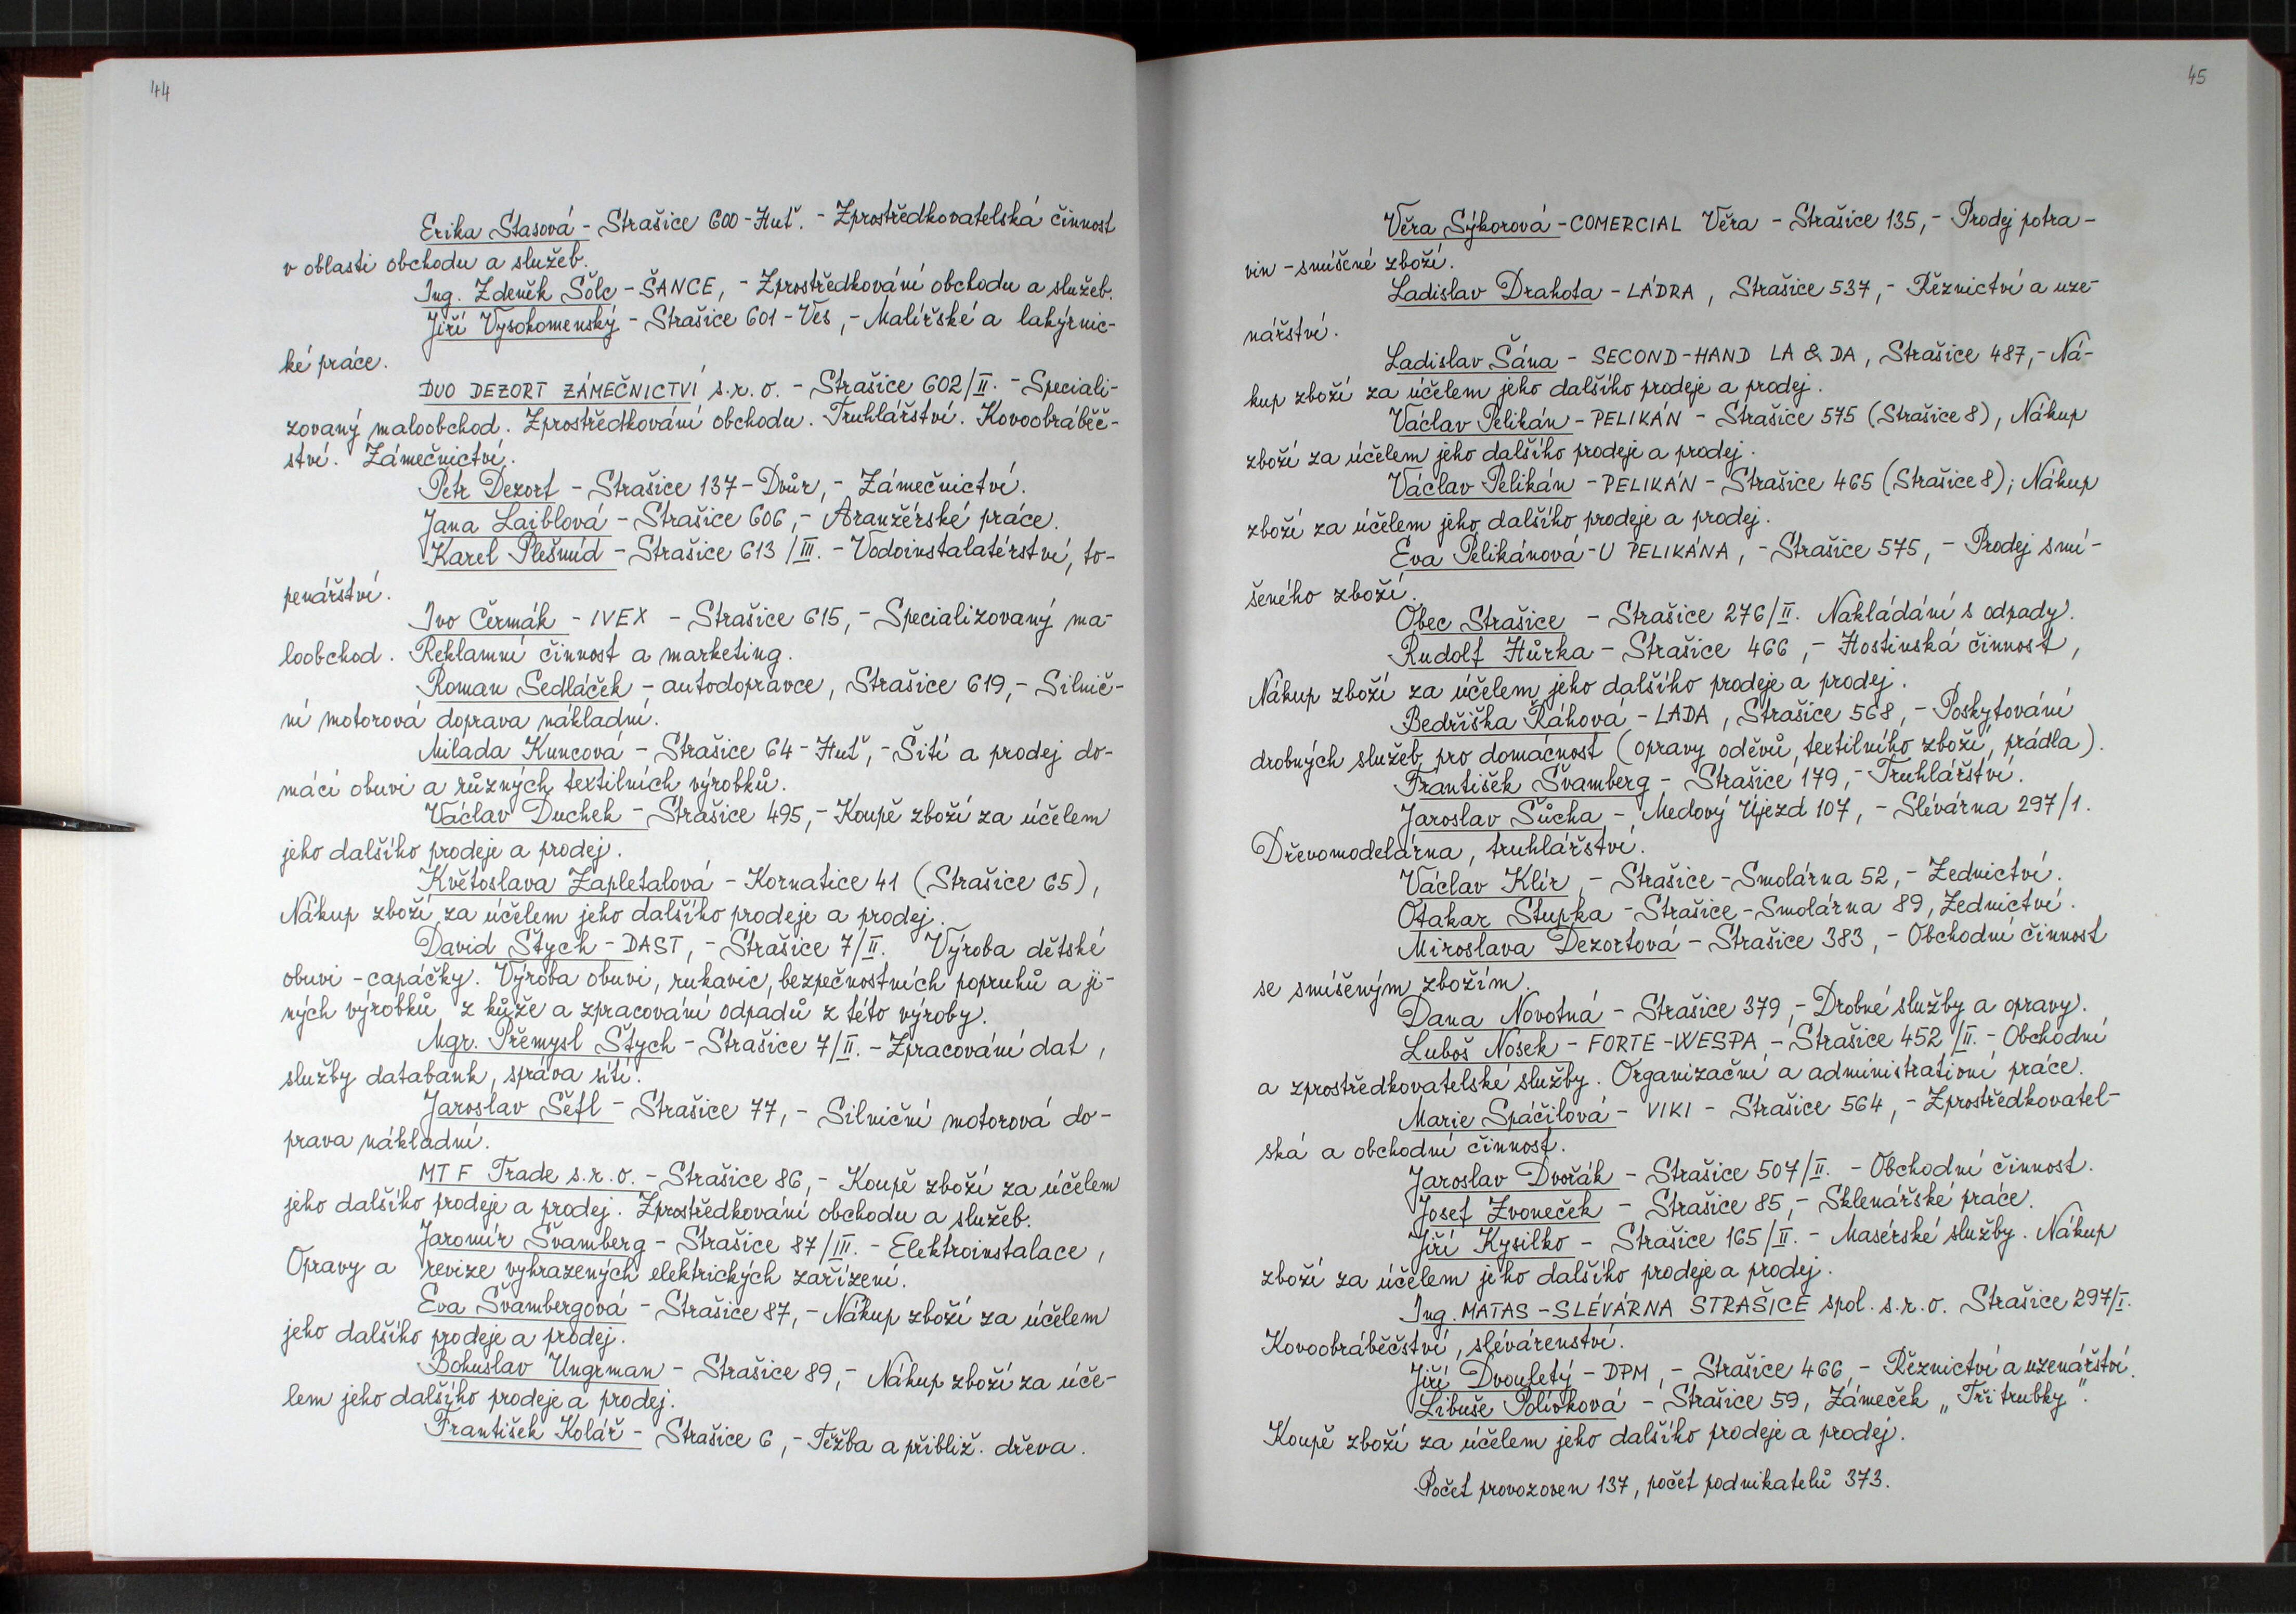 44
Erika Stasová - Strašice 600 - Huť. - Zprostředkovatelská činnost
v oblasti obchodu a služeb.
Ing. Zdeněk Šolc - ŠANCE, - Zprostředkování obchodu a služeb.
Jiří Vysokomenský - Strašice 601 - Ves, - Malířské a lakýrnic-
ké práce.
DUO DEZORT ZÁMEČNICTVÍ s.r.o. - Strašice 602/II. - Speciali-
zovaný maloobchod. Zprostředkování obchodu. Truhlářství. Kovoobráběč-
ství. Zámečnictví.
Petr Dezort - Strašice 137 - Dvůr, - Zámečnictví.
Jana Laiblová - Strašice 606, - Aranžérské práce.
Karel Plešmíd - Strašice 613/III. - Vodoinstalatérství, to-
penářství.
Ivo Čermák - IVEX - Strašice 615, - Specializovaný ma-
loobchod. Reklamní činnost a marketing.
Roman Sedláček - autodopravce, Strašice 619, - Silnič-
ní motorová doprava nákladní.
Milada Kuncová - Strašice 64 - Huť, - Šití a prodej do-
mácí obuvi a různých textilních výrobků.
Václav Duchek - Strašice 495, - Koupě zboží za účelem
jeho dalšího prodeje a prodej.
Květoslava Zapletalová - Kornatice 41 (Strašice 65),
Nákup zboží za účelem jeho dalšího prodeje a prodej.
David Štych - DAST, - Strašice 7/II. Výroba dětské
obuvi - capáčky. Výroba obuvi, rukavic, bezpečnostních popruhů a ji-
ných výrobků z kůže a zpracování odpadů z této výroby.
Mgr. Přemysl Štych - Strašice 7/II. - Zpracování dat,
služby databank, správa sítí.
Jaroslav Šefl - Strašice 77, - Silniční motorová do-
prava nákladní.
MT F Trade s.r.o. - Strašice 86, - Koupě zboží za účelem
jeho dalšího prodeje a prodej. Zprostředkování obchodu a služeb.
Jaromír Švamberg - Strašice 87/III. - Elektroinstalace,
Opravy a revize vyhrazených elektrických zařízení.
Eva Švambergová - Strašice 87, - Nákup zboží za účelem
jeho dalšího prodeje a prodej.
Bohuslav Ungrman - Strašice 89, - Nákup zboží za úče-
lem jeho dalšího prodeje a prodej.
František Kolář - Strašice 6, - Těžba a přibliž. dřeva.
45
Věra Sýkorová - COMERCIAL Věra - Strašice 135, - Prodej potra-
vin - smíšené zboží.
Ladislav Drahota - LÁDRA, Strašice 537, - Řeznictví a uze-
nářství.
Ladislav Šána - SECOND-HAND LA & DA, Strašice 487, - Ná-
kup zboží za účelem jeho dalšího prodeje a prodej.
Václav Pelikán - PELIKÁN - Strašice 575 (Strašice 8), Nákup
zboží za účelem jeho dalšího prodeje a prodej.
Václav Pelikán - PELIKÁN - Strašice 465 (Strašice 8); Nákup
zboží za účelem jeho dalšího prodeje a prodej.
Eva Pelikánová - U PELIKÁNA, - Strašice 575, - Prodej smí-
šeného zboží.
Obec Strašice - Strašice 276/II. Nakládání s odpady.
Rudolf Hůrka - Strašice 466, - Hostinská činnost,
Nákup zboží za účelem jeho dalšího prodeje a prodej.
Bedřiška Ráhová - LADA, Strašice 568, - Poskytování
drobných služeb pro domácnost (opravy oděvů, textilního zboží, prádla).
František Švamberg - Strašice 179, - Truhlářství.
Jaroslav Sůcha -, Medový Újezd 107, - Slévárna 297/1.
Dřevomodelárna, truhlářství.
Václav Klír, - Strašice - Smolárna 52, - Zednictví.
Otakar Stupka - Strašice - Smolárna 89, Zednictví.
Miroslava Dezortová - Strašice 383, - Obchodní činnost
se smíšeným zbožím.
Dana Novotná - Strašice 379, - Drobné služby a opravy.
Luboš Nosek - FORTE - WESPA - Strašice 452/II. - Obchodní
a zprostředkovatelské služby. Organizační a administrativní práce.
Marie Spáčilová - VIKI - Strašice 564, - Zprostředkovatel-
ská a obchodní činnost.
Jaroslav Dvořák - Strašice 507/II. - Obchodní činnost.
Josef Zvoneček - Strašice 85, - Sklenářské práce.
Jiří Kysilko - Strašice 165/II. - Masérské služby. Nákup
zboží za účelem jeho dalšího prodeje a prodej.
Ing. MATAS - SLÉVÁRNA STRAŠICE spol. s.r.o. Strašice 297/I.
Kovoobráběčství, slévárenství.
Jiří Dvouletý - DPM, - Strašice 466, - Řeznictví a uzenářství.
Libuše Polívková - Strašice 59, Zámeček „Tři trubky".
Koupě zboží za účelem jeho dalšího prodeje a prodej.
Počet provozoven 137, počet podnikatelů 373.